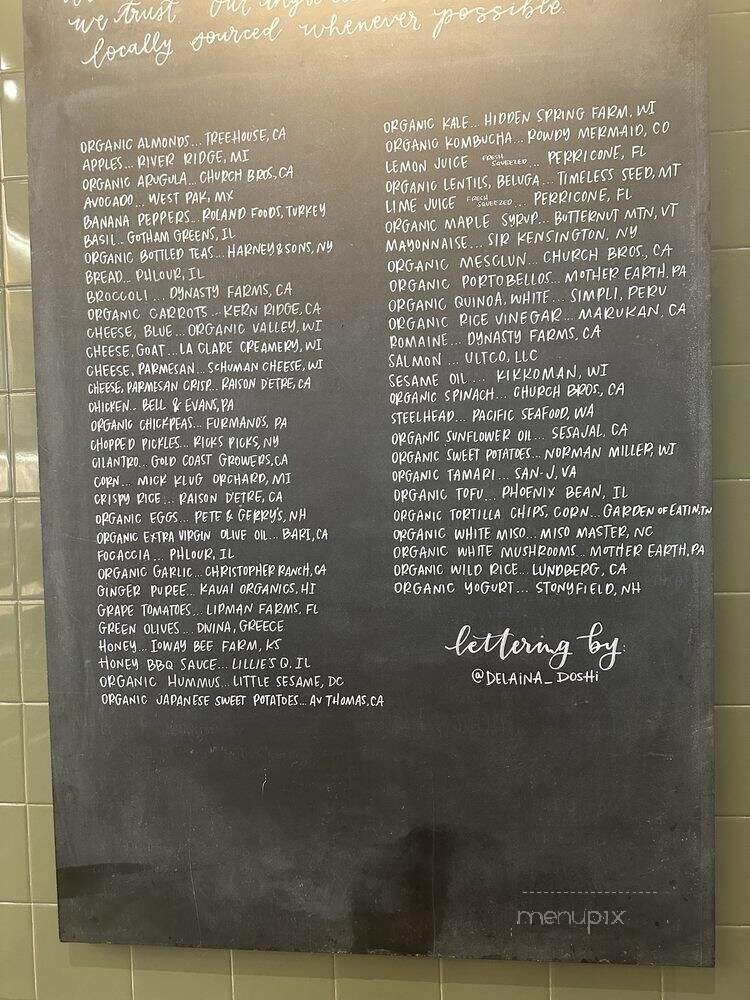 we trust. Our
locally sourced whenever possible.
ORGANIC ALMONDS... TREEHOUSE, CA
APPLES... RIVER RIDGE, MI
ORGANIC ARUGULA... CHURCH BROS, CA
AVOCADO... WEST PAK, MX
BANANA PEPPERS... ROLAND FOODS, TURKEY
BASIL.. GOTHAM GREENS, IL
ORGANIC BOTTLED TEAS... HARNEY & SONS, NY
BREAD... PHLOUR, IL
BROCCOLI ... DYNASTY FARMS, CA
ORGANIC CARROTS... KERN RIDGE, CA
CHEESE, BLUE... ORGANIC VALLEY, WI
CHEESE, GOAT... LA CLARE CREAMERY, WI
CHEESE, PARMESAN... SCHUMAN CHEESE, WI
CHEESE, PARMESAN CRISP... RAISON D'ETRE, CA
CHICKEN.. BELL & EVANS, PA
ORGANIC CHICKPEAS... FURMANO'S, PA
CHOPPED PICKLES... RICKS PICKS, NY
CILANTRO... GOLD COAST GROWERS, CA
CORN... MICK KLUG ORCHARD, MI
CRISPY RICE... RAISON D'ETRE, CA
ORGANIC EGGS... PETE & GERRY'S, NH
ORGANIC EXTRA VIRGIN OLIVE OIL... BARI, CA
FOCACCIA... PHLOUR, IL
ORGANIC GARLIC... CHRISTOPHER RANCH, CA
GINGER PUREE... KAUAI ORGANICS, HI
GRAPE TOMATOES... LIPMAN FARMS, FL
GREEN OLIVES... DIVINA, GREECE
HONEY... IOWAY BEE FARM, KS
HONEY BBQ SAUCE... LILLIE'S Q, IL
ORGANIC HUMMUS... LITTLE SESAME, DC
ORGANIC JAPANESE SWEET POTATOES... AV THOMAS, CA
ORGANIC KALE... HIDDEN SPRING FARM, WI
ORGANIC KOMBUCHA... ROWDY MERMAID, CO
LEMON JUICE FRESH SQUEEZED... PERRICONE, FL
ORGANIC LENTILS, BELUGA... TIMELESS SEED, MT
LIME JUICE FRESH SQUEEZED... PERRICONE, FL
ORGANIC MAPLE SYRUP... BUTTERNUT MTN, VT
MAYONNAISE... SIR KENSINGTON, NY
ORGANIC MESCLUN... CHURCH BROS, CA
ORGANIC PORTOBELLOS... MOTHER EARTH, PA
ORGANIC QUINOA, WHITE... SIMPLI, PERU
ORGANIC RICE VINEGAR... MARUKAN, CA
ROMAINE... DYNASTY FARMS, CA
SALMON ... ULTCO, LLC
SESAME OIL ... KIKKOMAN, WI
ORGANIC SPINACH... CHURCH BROS, CA
STEELHEAD... PACIFIC SEAFOOD, WA
ORGANIC SUNFLOWER OIL... SESAJAL, CA
ORGANIC SWEET POTATOES... NORMAN MILLER, WI
ORGANIC TAMARI... SAN-J, VA
ORGANIC TOFU... PHOENIX BEAN, IL
ORGANIC TORTILLA CHIPS, CORN... GARDEN OF EATIN, TN
ORGANIC WHITE MISO... MISO MASTER, NC
ORGANIC WHITE MUSHROOMS... MOTHER EARTH, PA
ORGANIC WILD RICE... LUNDBERG, CA
ORGANIC YOGURT... STONYFIELD, NH
lettering by:
@DELAINA_DOSHI
menupix